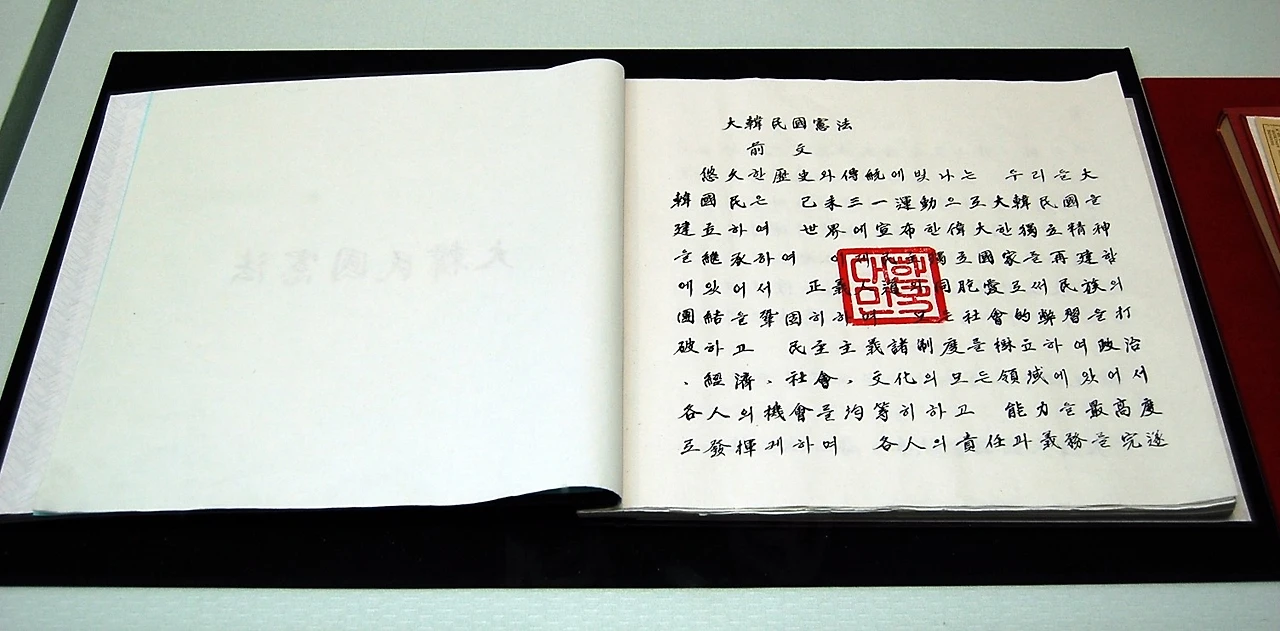 大韓民國憲法
前文
悠久한歷史와傳統에빛나는 우리들大
韓國民은 己未三一運動으로大韓民國을
建立하여 世界에宣布한偉大한獨立精神
을繼承하여 이제民主獨立國家를再建함
에있어서 正義人道와同胞愛로써民族의
團結을鞏固히하며 모든社會的弊習을打
破하고 民主主義諸制度를樹立하여政治
、經濟、社會、文化의모든領域에있어서
各人의機會를均等히하고 能力을最高度
로發揮케하며 各人의責任과義務를完遂
대한
민국